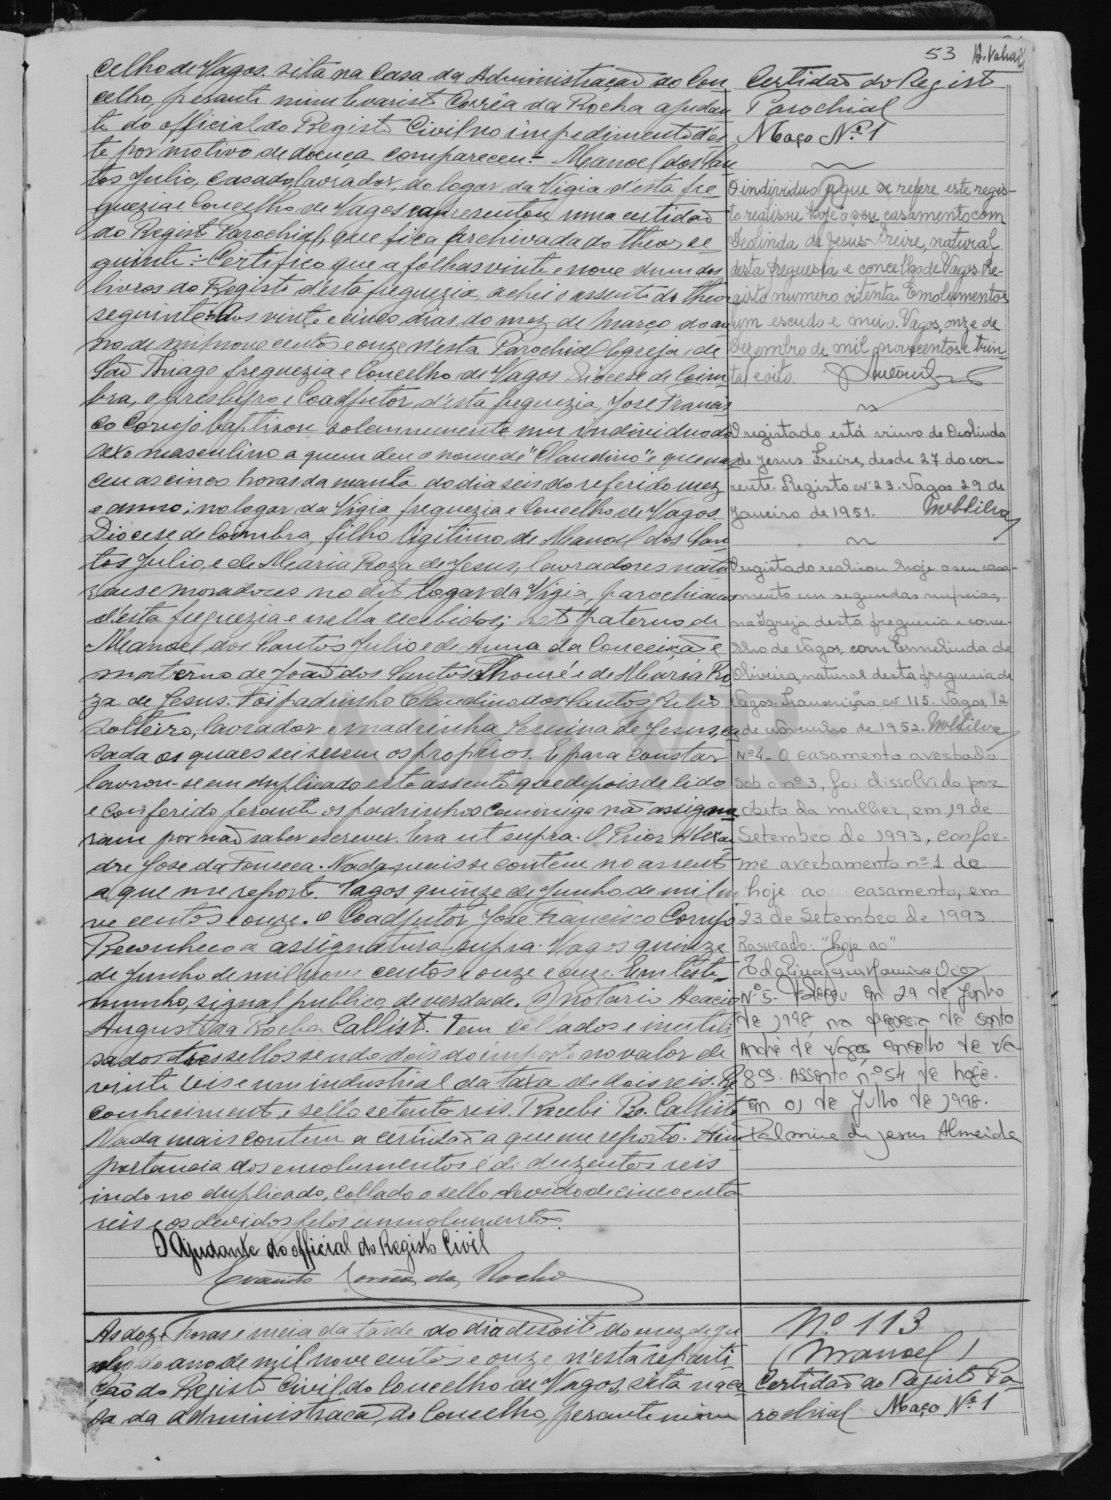 53 A. Valia
celho de Vagos, sita na Casa da Administração do Con
celho, perante mim Evaristo Corrêa da Rocha ajudan
te do official do Registo Civil no impedimento d'es
te por motivo de doença compareceu - Manoel dos San
tos Julio, casado, lavrador, do logar da Vigia d'esta fre
guezia e Concelho de Vagos e apresentou uma certidão
do Registo Parochial, que fica archivada do theor se
guinte: Certifico que a folhas vinte e nove d'um dos
livros do Registo d'esta freguezia, achei o assento do theor
seguinte: Aos vinte e cinco dias do mez de Março do an
no de mil nove centos e onze n'esta Parochial Egreja de
São Thiago freguezia e Concelho de Vagos Diocese de Coim
bra, o presbytero e Coadjutor d'esta freguezia, José Francis
co Corujo baptisou solemnemente um individuo do
sexo masculino a quem deu o nome de "Claudino" e que nas
ceu as cinco horas da manhã do dia seis do referido mez
e anno; no logar da Vigia, freguezia e Concelho de Vagos,
Diocese de Coimbra, filho legitimo de Manoel dos San
tos Julio, e de Maria Roza de Jesus, lavradores natu
raes e moradores no dito logar da Vigia, parochianos
d'esta freguezia e nella recebidos; neto paterno de
Manoel dos Santos Julio e de Anna da Conceição e
materno de João dos Santos Thomé e de Maria Ro
za de Jesus. Foi padrinho Claudino dos Santos Julio
solteiro, lavrador e madrinha Jesuina de Jesus, ca
sada os quaes sei serem os proprios. E para constar
lavrou-se em duplicado este assento que depois de lido
e conferido perante os padrinhos commigo não assigna
ram por não saber escrever. Era ut supra. O Prior Alexan
dre José da Fonseca. Nada mais se contem no assento
a que me reporto. Vagos quinze de Junho de mil no
ve centos e onze. O Coadjutor José Francisco Corujo
Reconheço a assignatura supra. Vagos quinze
de Junho de mil nove centos e onze e onze. Em teste
munho, signal publico de verdade. O notario Acacio
Augusto da Rocha Callisto. Tem collados e inutili
sados tres sellos sendo dois do imposto no valor de
vinte reis e um industrial da taxa de dois reis. Re
conhecimento e sello setenta reis. Recebi Ro. Callisto
Nada mais contem a certidão a que me reporto. A im
portancia dos emolumentos é de duzentos reis
indo no duplicado, collado o sello devido de cincoenta
reis e os devidos pelos emmolumentos.
O Ajudante do official do Registo Civil
Evaristo Corrêa da Rocha
Certidão do Regist
Parochial
Maço Nº 1
O individuo a que se refere este regis-
to realisou hoje o seu casamento com
Deolinda de Jesus Freire, natural
desta freguesia e concelho de Vagos. Re-
gisto numero oitenta. Emolumentos
um escudo e meio. Vagos, onze de
Dezembro de mil novecentos e trin-
ta e oito.
O registado está viuvo de Deolinda
de Jesus Freire, desde 27 do cor-
rente. Registo nº 23. Vagos 29 de
Janeiro de 1951.
O registado realisou hoje o seu casa-
mento em segundas nupcias,
na Igreja desta freguesia e conce-
lho de Vagos, com Ermelinda de
Oliveira, natural desta freguesia de
Vagos. Transcrição nº 115. Vagos, 12
de Novembro de 1952.
Nº 4 - O casamento averbado
sob o nº 3, foi dissolvido por
obito da mulher, em 19 de
Setembro de 1993, confor-
me averbamento nº 1 de
hoje ao casamento, em
23 de Setembro de 1993.
Rasurado: "hoje ao"
Nº 5 - Faleceu em 29 de Junho
de 1998 na freguesia de Santo
André de Vagos, concelho de Va-
gos. Assento nº 54 de hoje.
Em 01 de Julho de 1998.
Palmira de Jesus Almeida
As doze horas e meia da tarde do dia desoito do mez de ju
nho do ano de mil nove centos e onze n'esta reparti
ção do Registo Civil do Concelho de Vagos, sita na ca
sa da administração do Concelho, perante mim
Nº 113
Manoel
Certidão do Registo Pa-
rochial Maço Nº 1